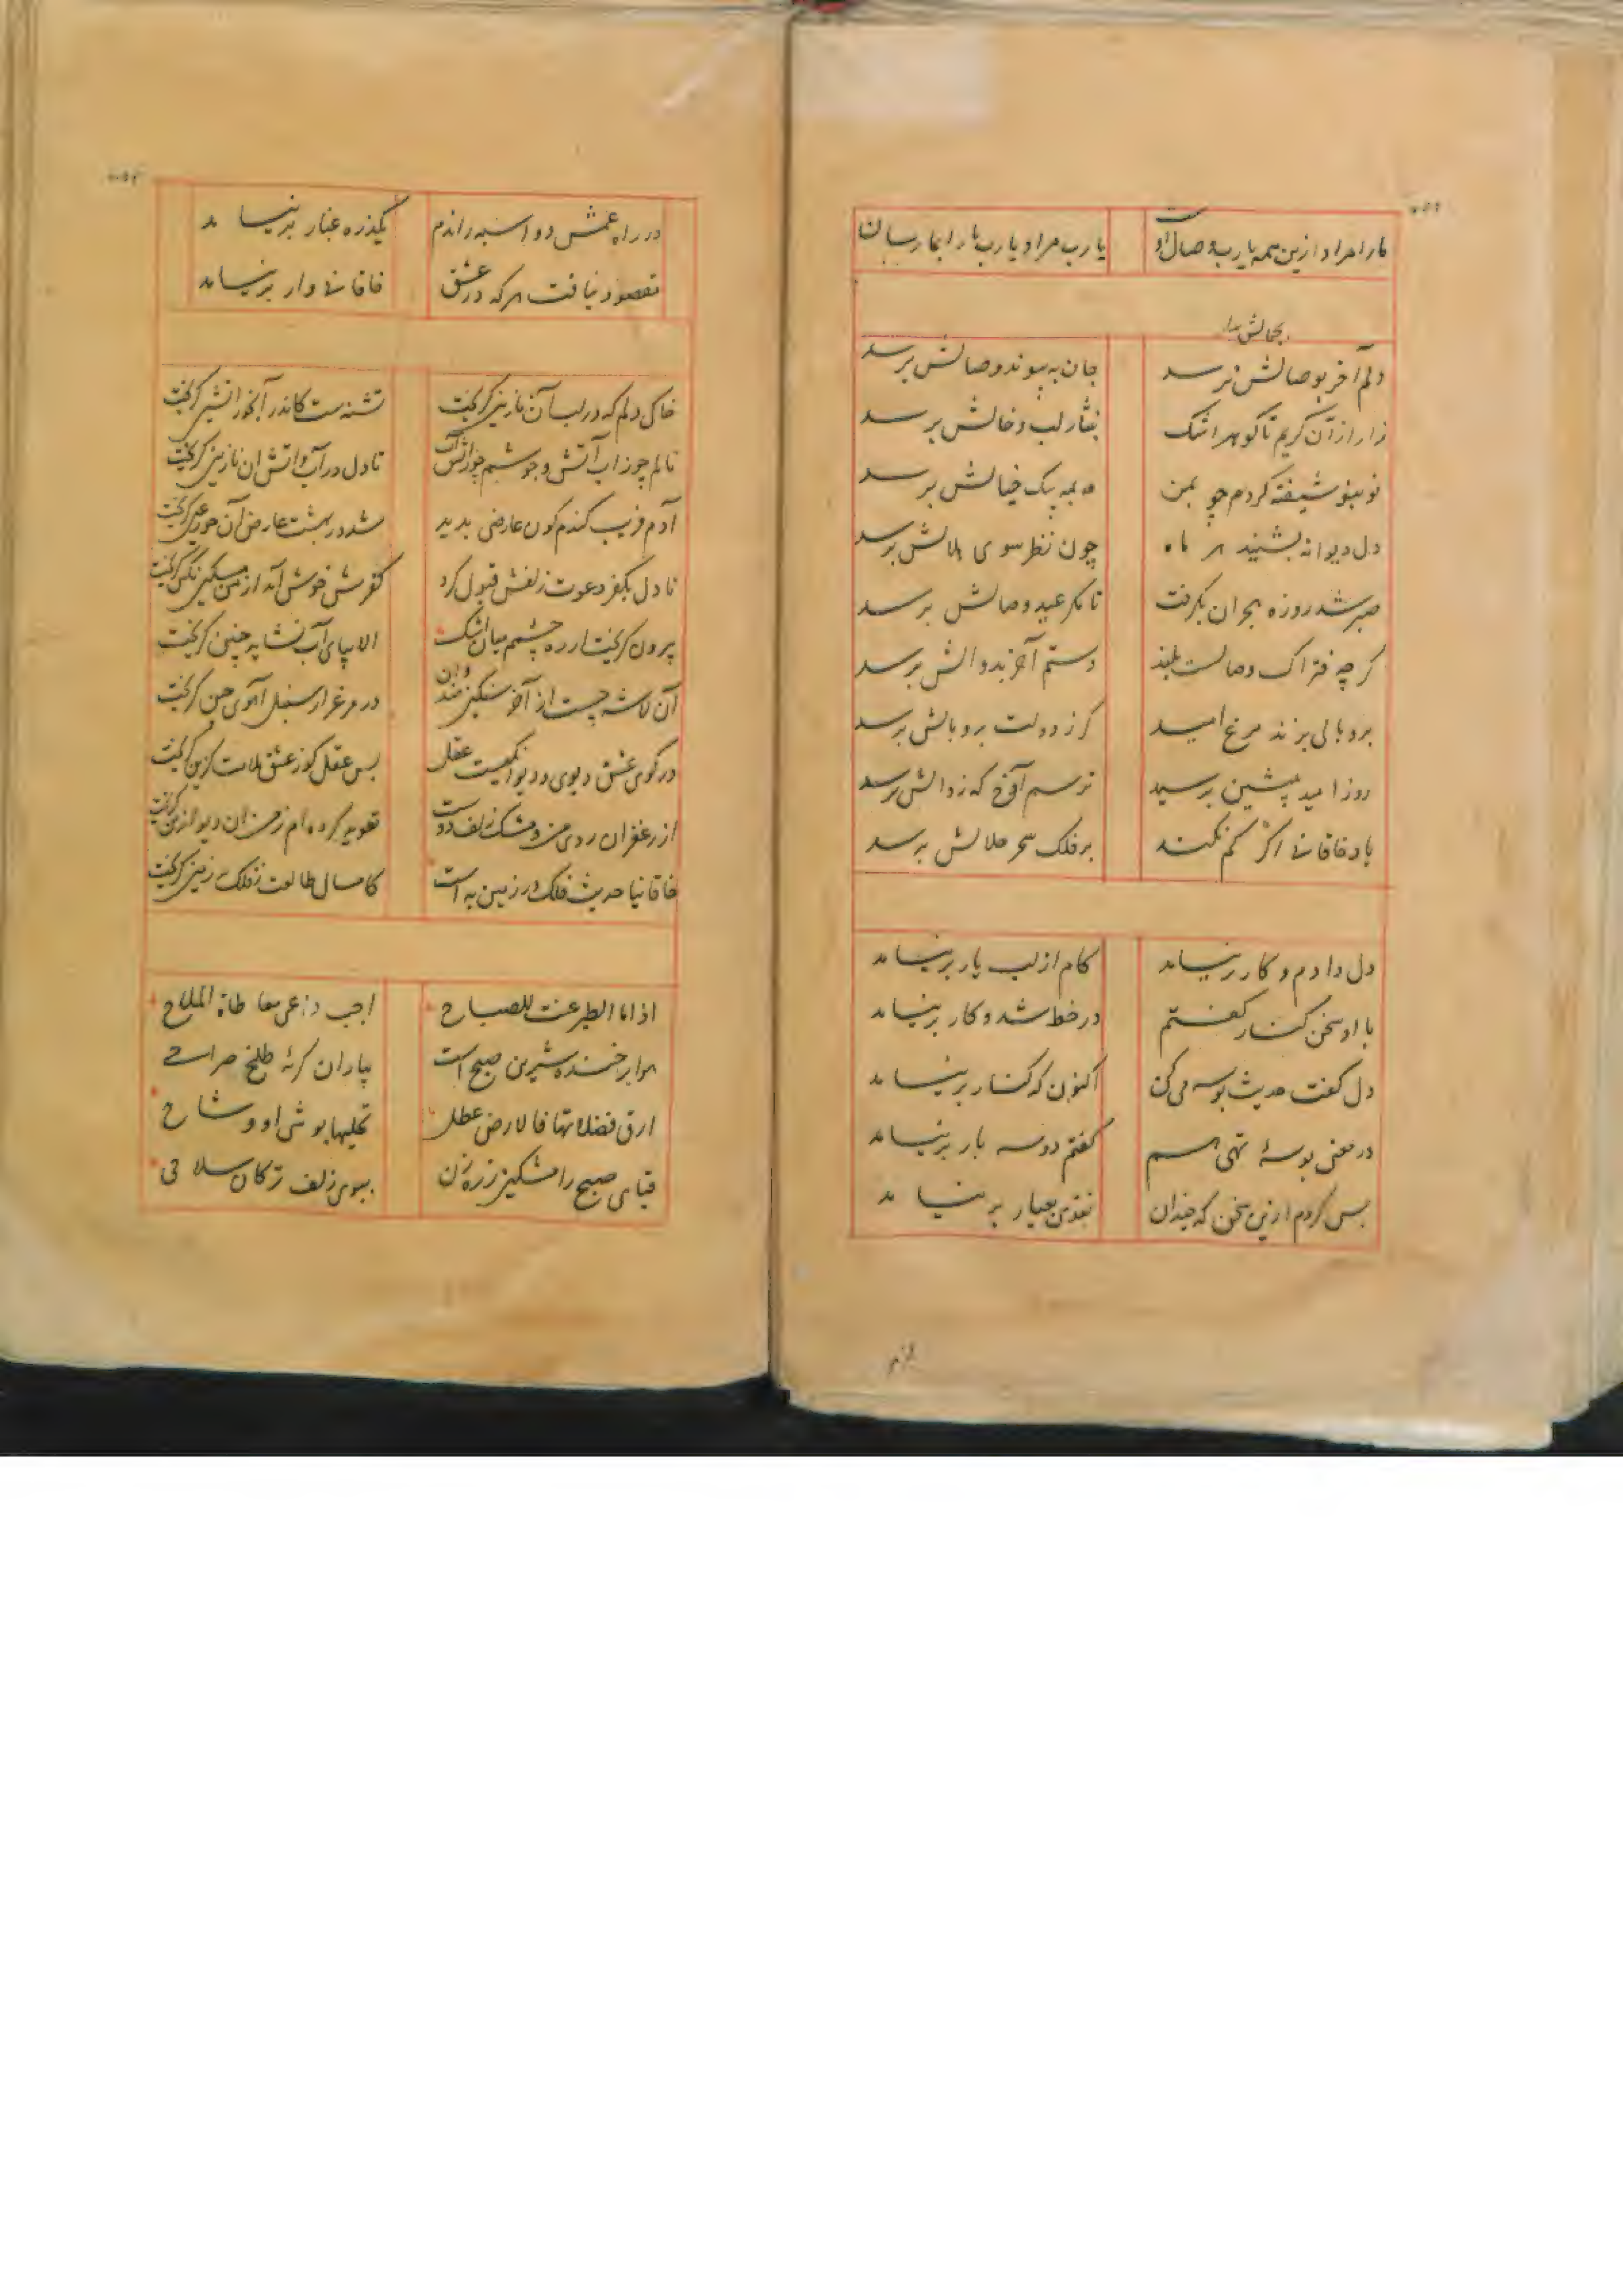 ما را مراد ازین همه یا رب وصال اوست یا رب مراد یا رب ما را بما رسان
بجمالش برسد
دلم آخر بوصالش برسد جان به پیوند وصالش برسد
زار از آن گریم تا گوهر اشک بنثار لب و خالش برسد
نو بنو شیفته گردم چو بمن مه بمه پیک خیالش برسد
دل دیوانه بشیبد هر ماه چون نظر سوی هلالش برسد
صبر شد روزه هجران بگرفت تا مگر عید وصالش برسد
گرچه فتراک وصالست بلند دستم آخر بدوالش برسد
پر و بالی بزند مرغ امید گر ز دولت پر و بالش برسد
روز امید بپیشین برسید ترسم آوخ که زوالش برسد
باد خاقانی اگر کم نکند بر فلک سحر حلالش برسد
دل دادم و کار برنیامد کام از لب یار برنیامد
با او سخن کنار گفتم در خط شد و کار برنیامد
دل گفت حدیث بوسه می کن اکنون که کنار برنیامد
در معنی بوسهٔ تهی هم گفتم دو سه بار برنیامد
بس کردم ازین سخن که چندان نقدی بعیار برنیامد
در راه غمش دو اسبه راندم یکذره غبار برنیامد
مقصود نیافت هر که در عشق خاقانی وار برنیامد
خاکی دلم که در لب آن نازنین گریخت تشنه ست کاندر آبخور آتشین گریخت
نالم چو ز آب آتش و جوشم چو ز آتش آب تا دل در آب و آتش آن نازنین گریخت
آدم فریب گندم گون عارضی بدید شد در بهشت عارض آن حور عین گریخت
تا دل بکفر دعوت زلفش قبول کرد کفرش خوش آمد از من مسکین بکین گریخت
بیرون گریخت از ره چشم میان اشک الا بپای آب نشاید چنین گریخت
آن لاشه جست از آخور سنگین هند وان در مرغزار سنبل آهوی چین گریخت
در کوی عشق دیوی و دیوانگیست عقل بس عقل کو ز عشق ملامت گزین گریخت
از زعفران روی من و مشک زلف دوست تعویذ کرده ام ز من آن دیو ازین گریخت
خاقانیا حدیث فلک در زمین به است کامسال طالعت ز فلک بر زمین گریخت
اذا ما الطیر غنت للصباح اجب داعی معاطاة الملاح
هوا بر خنده شیرین صبح است بباران گریهٔ تلخ صراحی
ارق فضلاتها فالارض عطلی تحلیها بوشی او وشاح
قبای صبح را مشکین زره زن ببوی زلف ترکان سلاحی